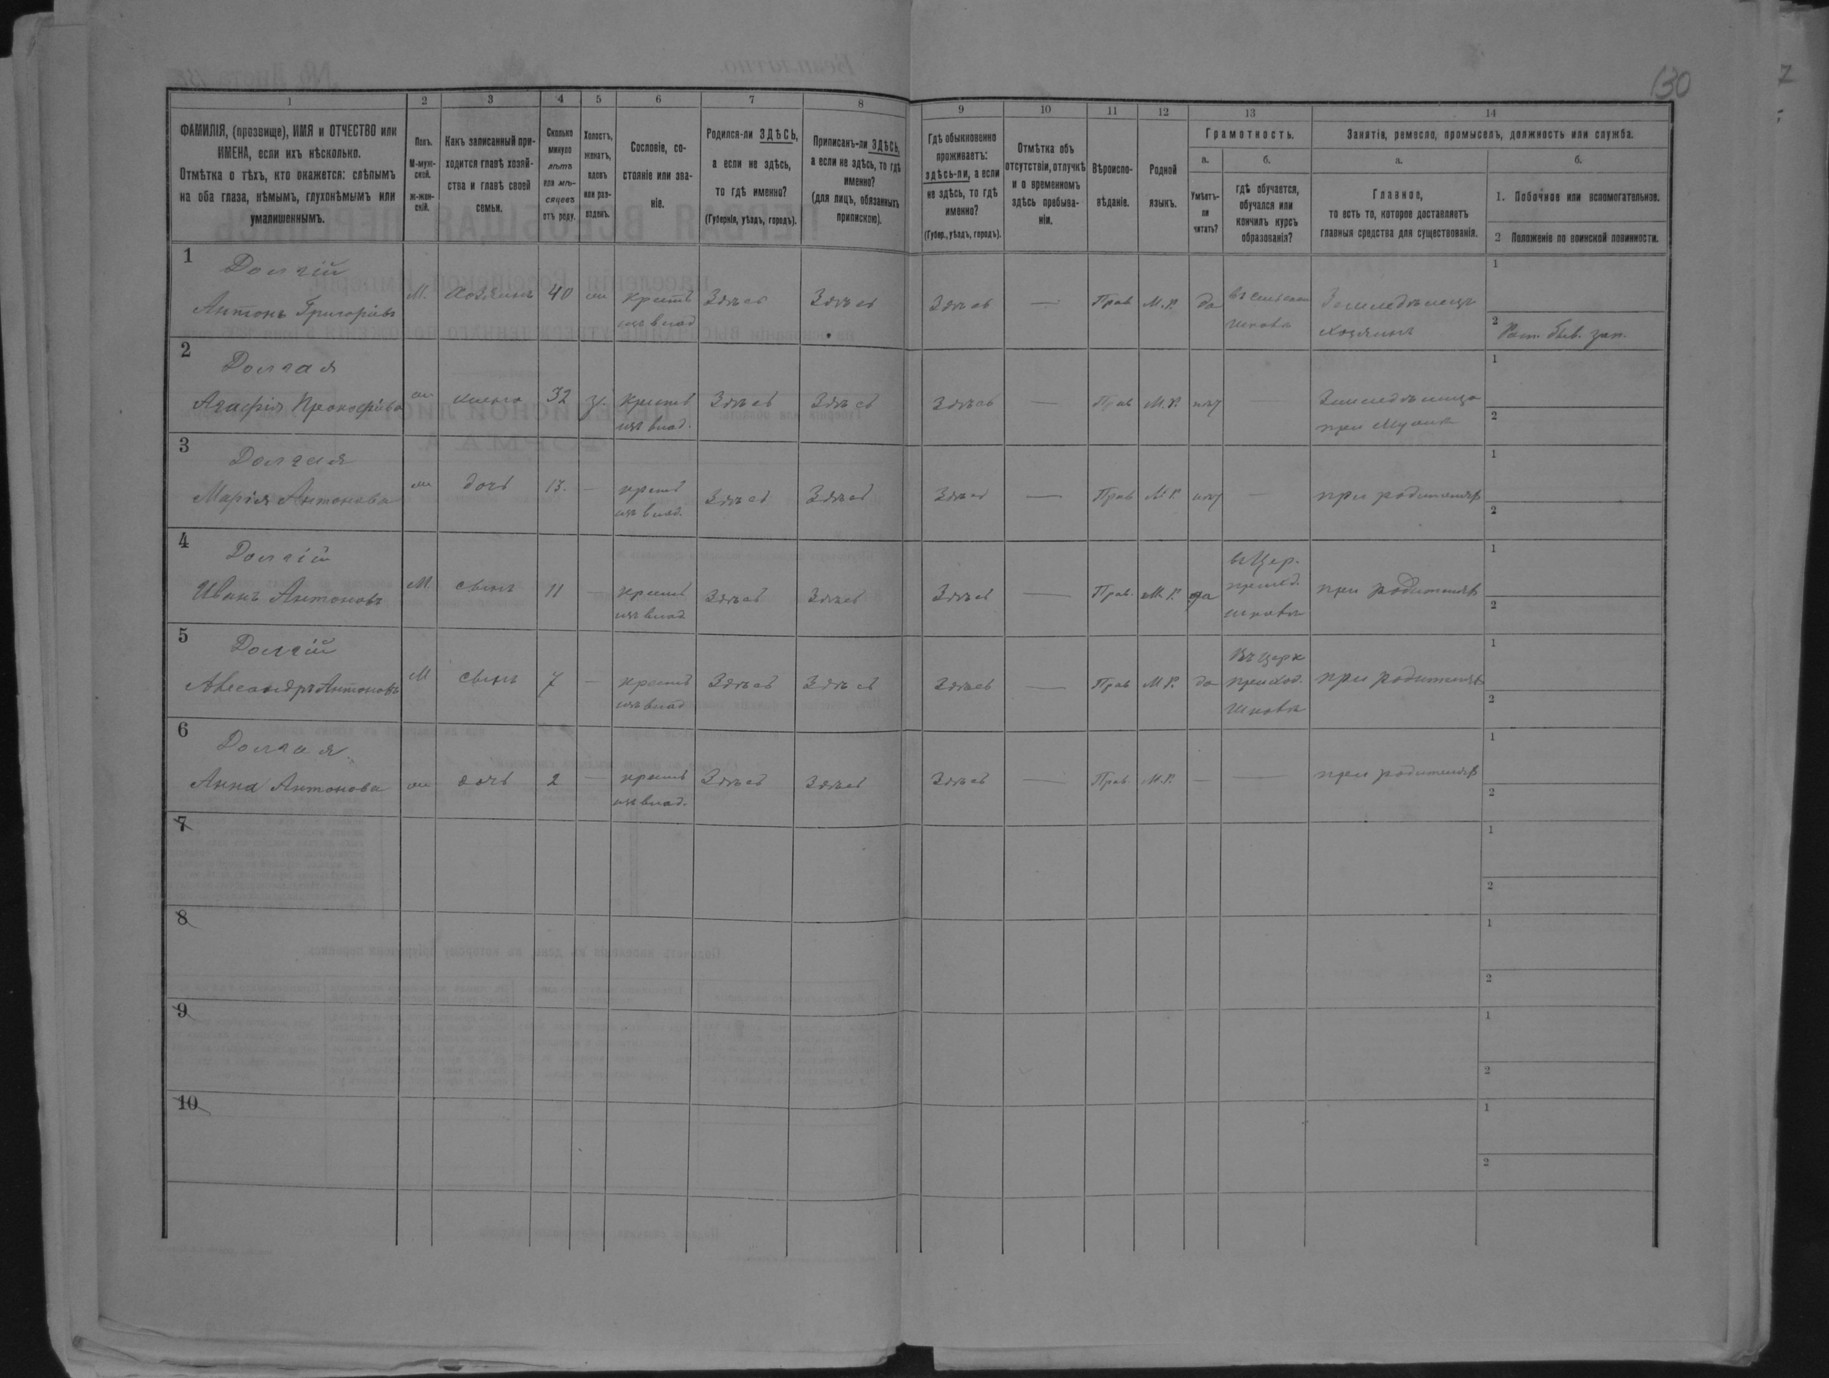 130
1 2 3 4 5 6 7 8 9 10 11 12 13 14
ФАМИЛІЯ, (прозвище), ИМЯ и ОТЧЕСТВО или
ИМЕНА, если ихъ нѣсколько.
Отмѣтка о тѣхъ, кто окажется: слѣпымъ
на оба глаза, нѣмымъ, глухонѣмымъ или
умалишеннымъ.
Полъ.
М-муж-
ской.
ж-жен-
скій.
Какъ записанный при-
ходится главѣ хозяй-
ства и главѣ своей
семьи.
Сколько
минуло
лѣтъ
или мѣ-
сяцевъ
отъ роду.
Холостъ,
женатъ,
вдовъ
или раз-
веденъ.
Сословіе, со-
стояніе или зва-
ніе.
Родился-ли ЗДѢСЬ,
а если не здѣсь,
то гдѣ именно?
(Губернія, уѣздъ, городъ).
Приписанъ-ли ЗДѢСЬ,
а если не здѣсь, то гдѣ
именно?
(для лицъ, обязанныхъ
припискою).
Гдѣ обыкновенно
проживаетъ:
здѣсь-ли, а если
не здѣсь, то гдѣ
именно?
(Губер., уѣздъ, городъ).
Отмѣтка объ
отсутствіи, отлучкѣ
и о временномъ
здѣсь пребыва-
ніи.
Вѣроиспо-
вѣданіе.
Родной
языкъ.
Грамотность.
а.
Умѣетъ-
ли
читать?
б.
гдѣ обучается,
обучался или
кончилъ курсъ
образованія?
Занятія, ремесло, промыселъ, должность или служба.
а.
Главное,
то есть то, которое доставляетъ
главныя средства для существованія.
б.
1. Побочное или вспомогательное.
2 Положеніе по воинской повинности.
1
Долгій
Антонъ Григорьевъ
М. Хозяинъ 40 крестъ
изъ влад
Здѣсь Здѣсь Здѣсь — Прав М.Р. да
въ сельской
школѣ
Земледѣлецъ
хозяинъ
1
2
2
Долгая
Агафія Прокофьева
ж жена 32 З. Крестъ
изъ влад.
Здѣсь Здѣсь Здѣсь — Прав М.Р. нѣт —
при мужѣ
1
2
3
Долгая
Марія Антонова
ж дочь 13. — крестъ
изъ влад.
Здѣсь Здѣсь Здѣсь — Прав М.Р. нѣт — при родителяхъ
1
2
4
Долгій
Иванъ Антоновъ
М сынъ 11 — крестъ
изъ влад
Здѣсь Здѣсь Здѣсь — Прав. М.Р. да
въ Цер.
приход.
школѣ
при родителяхъ
1
2
5
Долгій
Александръ Антоновъ
М сынъ 7 — крестъ
изъ влад
Здѣсь Здѣсь Здѣсь — Прав М.Р. да
Въ Церк
приход.
школѣ
при родителяхъ
1
2
6
Долгая
Анна Антонова
ж дочь 2 — крестъ
изъ влад.
Здѣсь Здѣсь Здѣсь — Прав М.Р. — — при родителяхъ
1
2
7
1
2
8
1
2
9
1
2
10
1
2